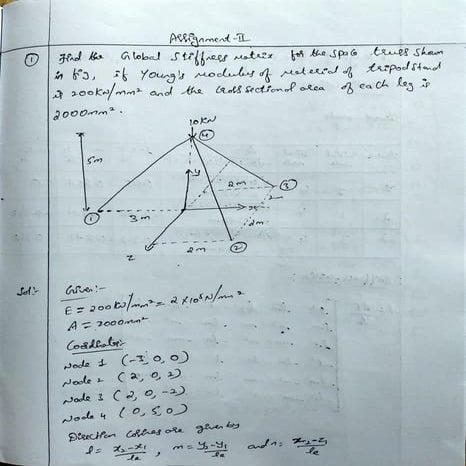 Assignment-II
① Find the Global Stiffness matrix for the space truss shown
in fig, if Young's modulus of material of tripod stand
is 200kN/mm² and the cross sectional area of each leg is
2000mm².
10KN
④
5m
y
2m
③
①
3m
x
2m
z
2m
②
Sol:-
Given:-
E = 200kN/mm² = 2×10⁵N/mm².
A = 2000mm²
Coordinates:-
Node 1 (-3, 0, 0)
Node 2 (2, 0, 2)
Node 3 (2, 0, -2)
Node 4 (0, 5, 0)
Direction cosines are given by
l = x₂-x₁/le , m = y₂-y₁/le and n = z₂-z₁/le